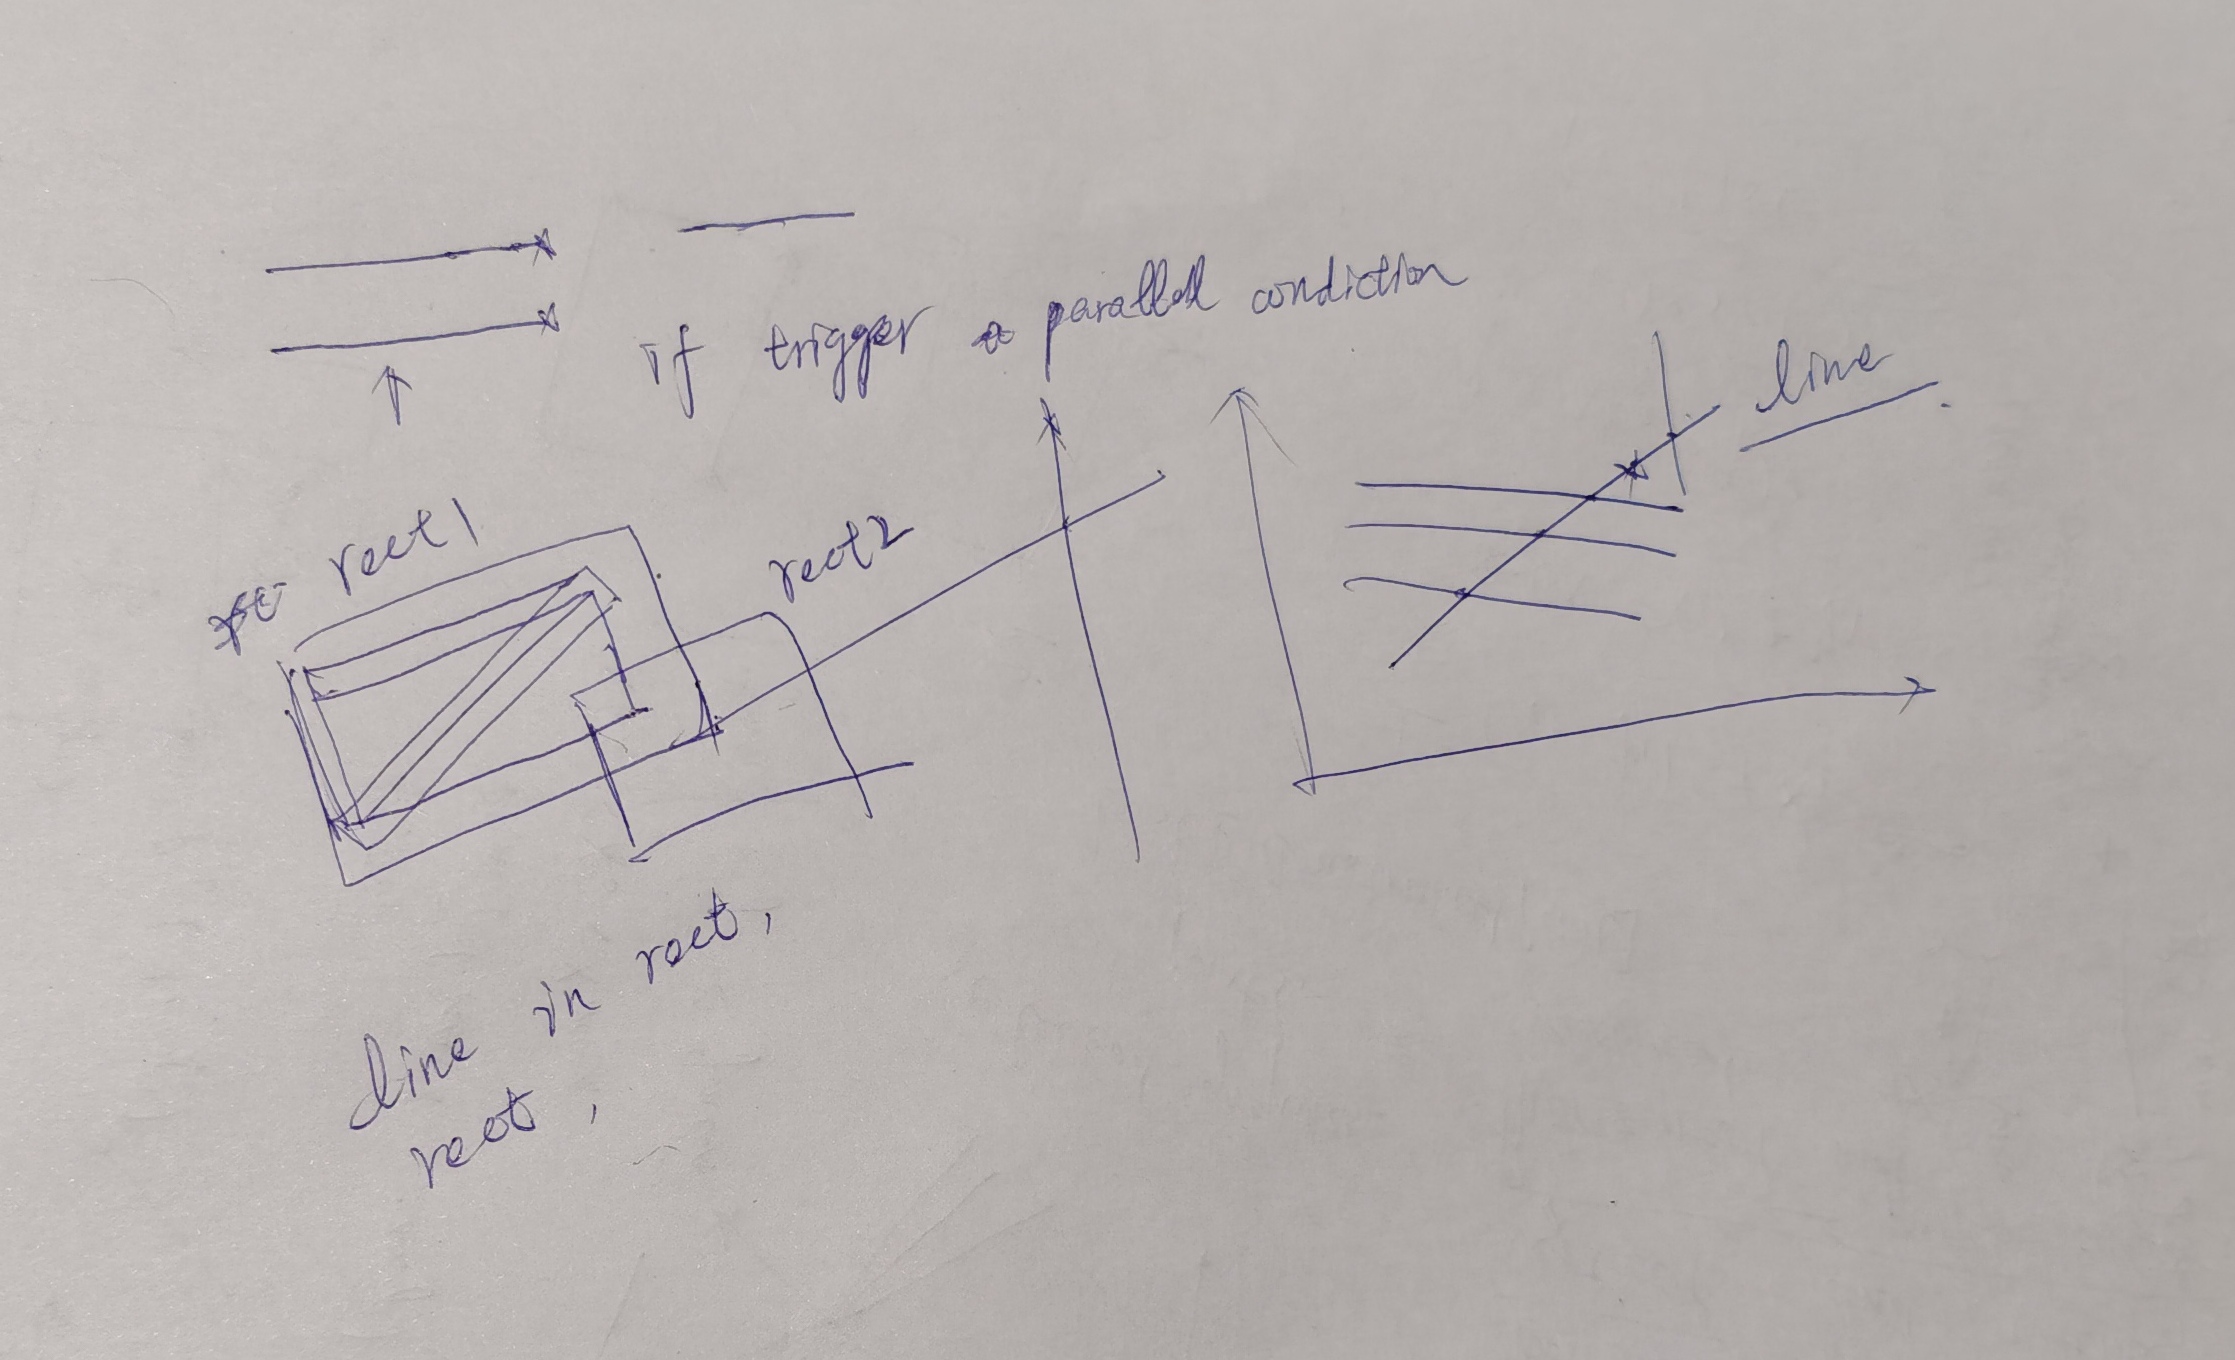 if trigger a parallel condiction
line
rect1
rect2
line in rect,
rect,